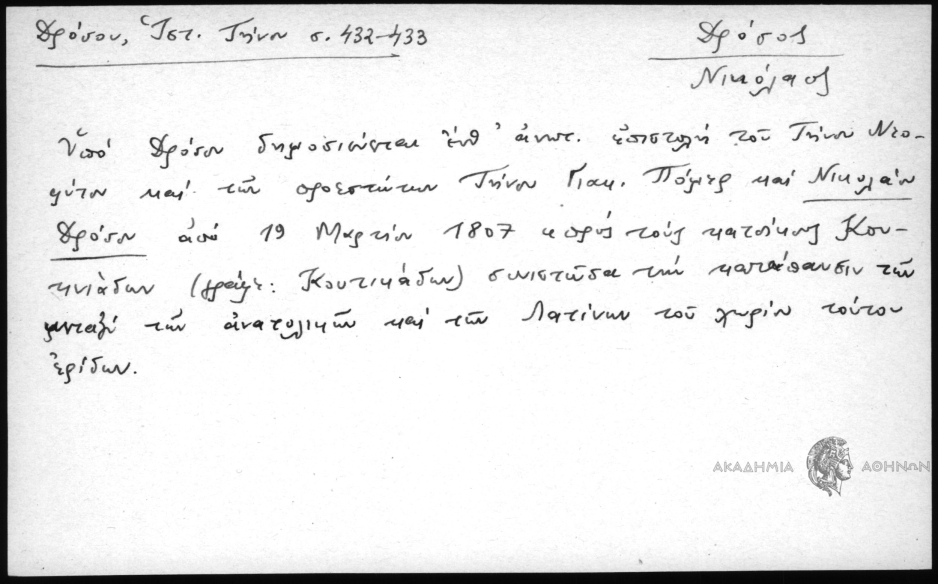 Δρόσου, Ἱστ. Τήνου σ. 432-433
Δρόσος
Νικόλαος
Ὑπό Δρόσου δημοσιεύεται ἔνθ' ἀνωτ. ἐπιστολή τοῦ Τήνου Νεο-
φύτου καί τῶν προεστώτων Τήνου Γιακ. Πώμερ καί Νικολάου
Δρόσου ἀπό 19 Μαρτίου 1807 πρός τούς κατοίκους Κου-
τνιάδων (γράφε: Κουτικάδων) συνιστῶσα τήν κατάπαυσιν τῶν
μεταξύ τῶν ἀνατολικῶν καί τῶν Λατίνων τοῦ χωρίου τούτου
ἐρίδων.
ΑΚΑΔΗΜΙΑ ΑΘΗΝΩΝ